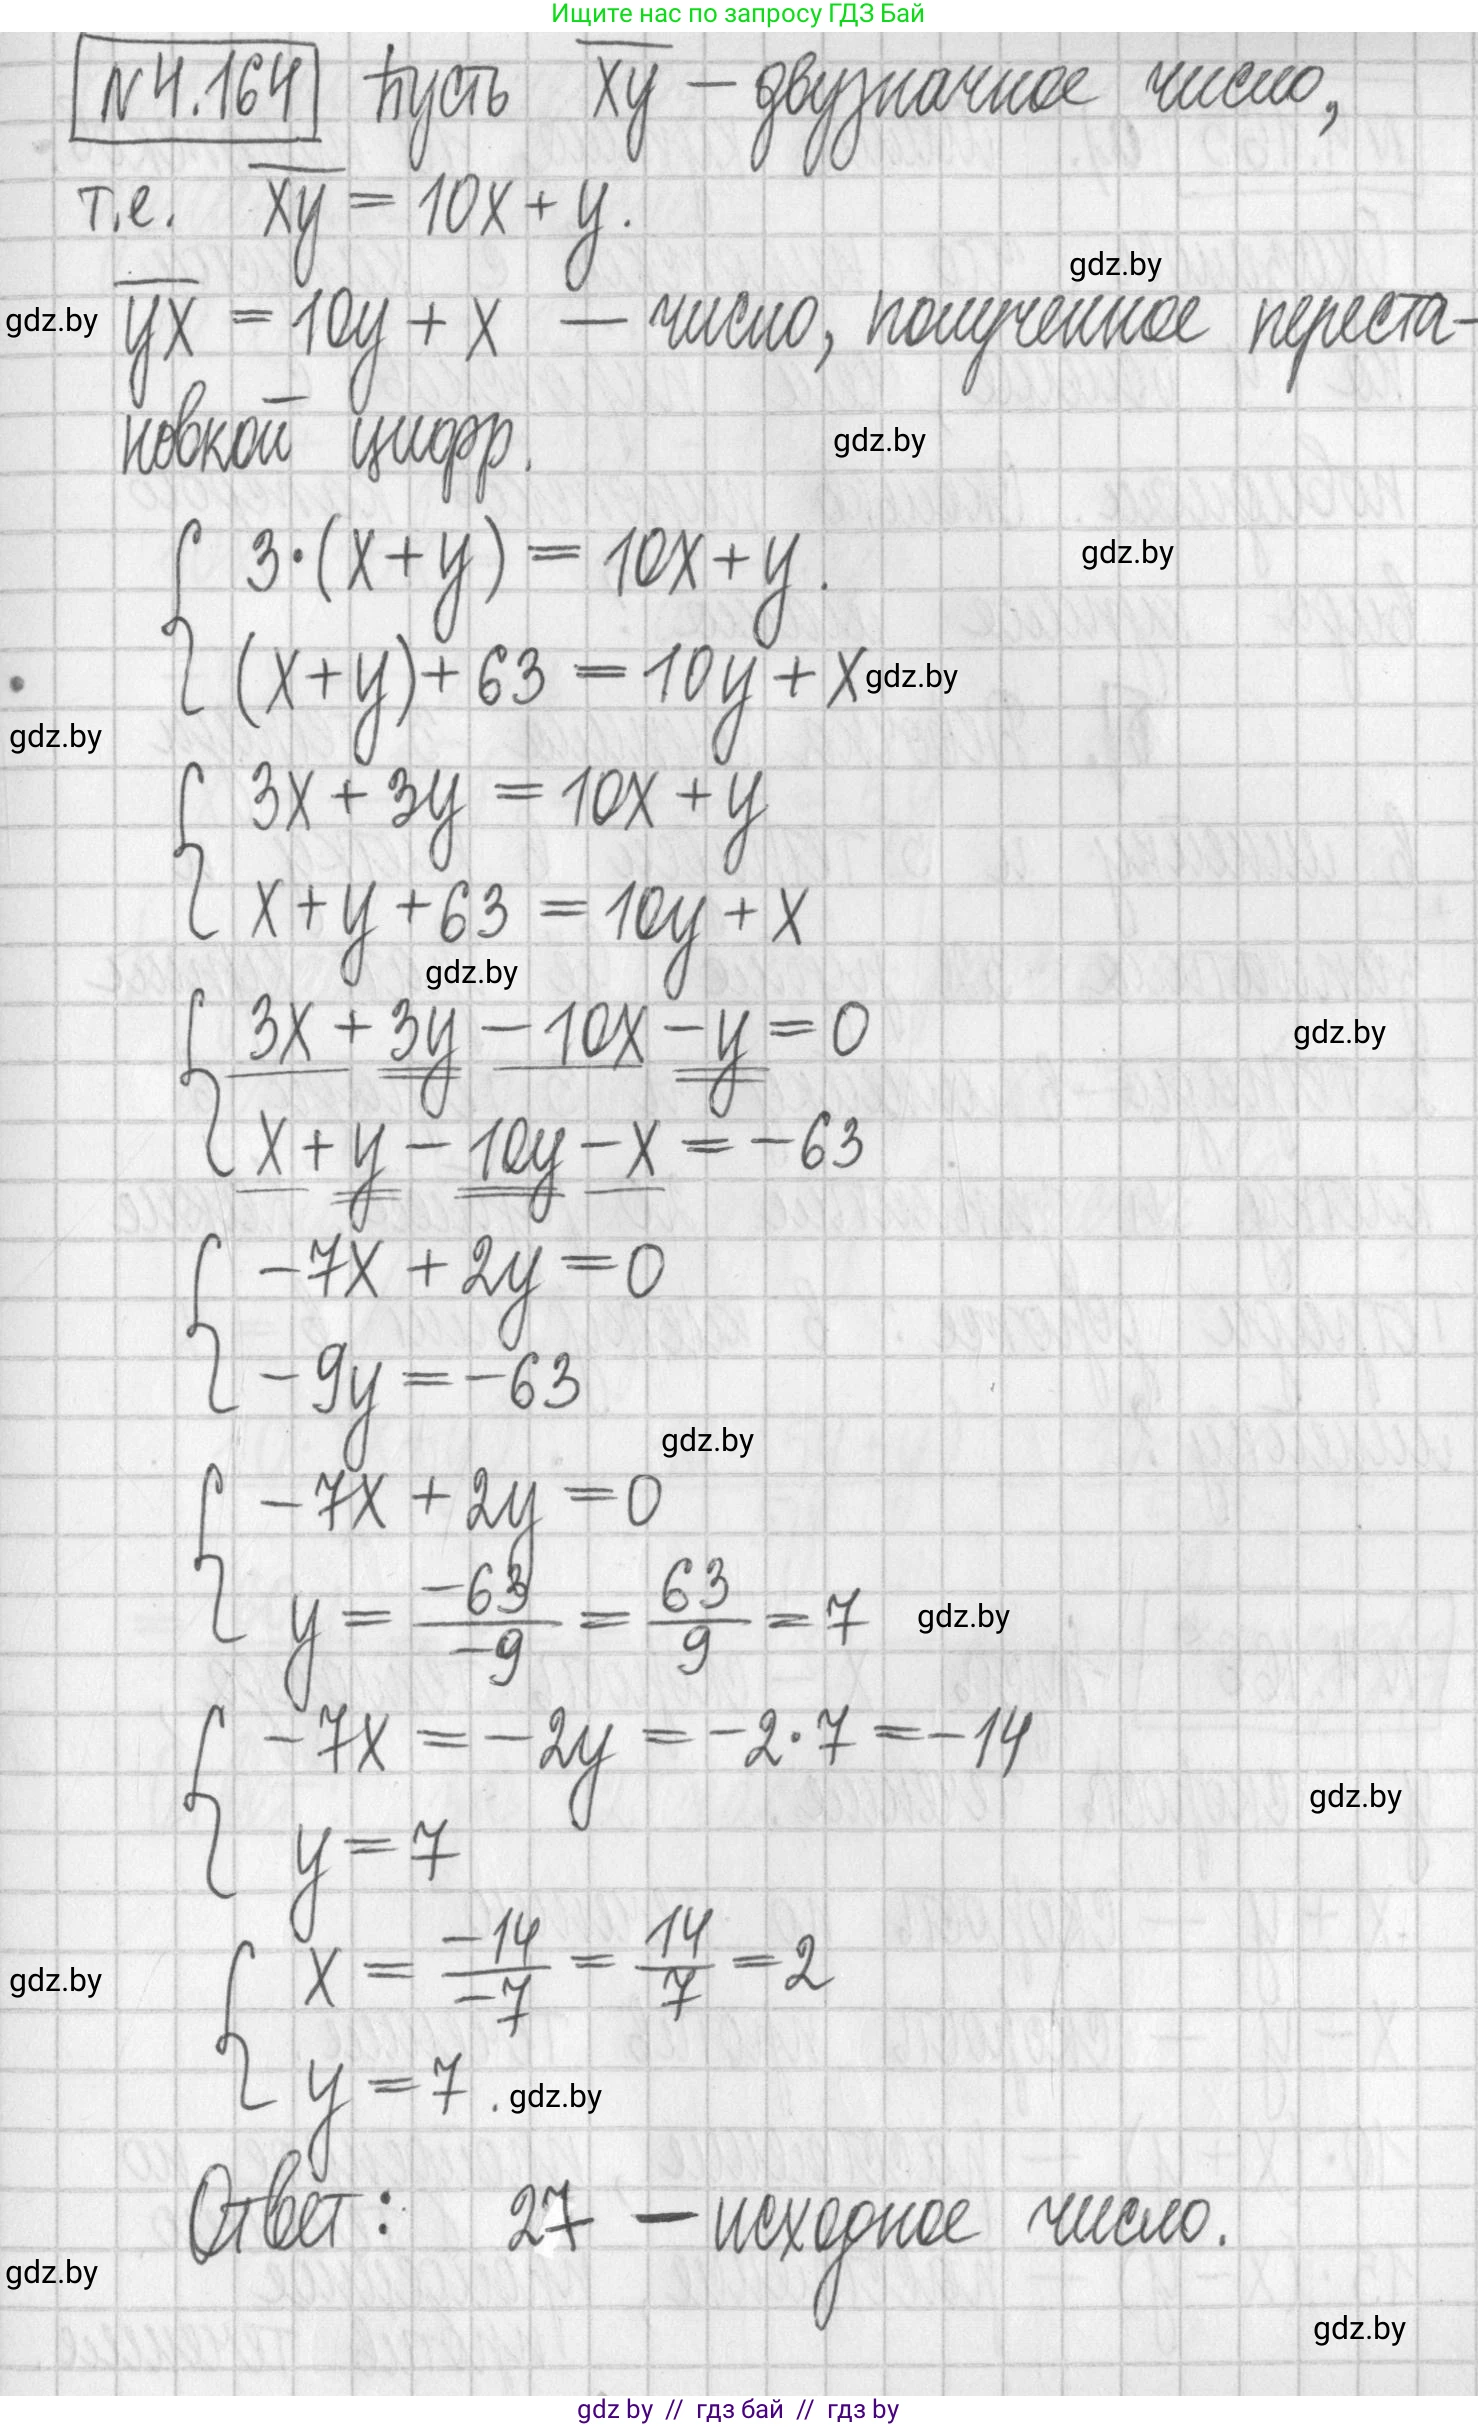 Ищите нас по запросу ГДЗ Бай
№4.164 Пусть xy — двузначное число,
т.е. xy = 10x + y.
gdz.by
gdz.by yx = 10y + x — число, полученное переста-
новкой цифр.
gdz.by
3·(x+y) = 10x+y.
gdz.by
(x+y)+63 = 10y+x
gdz.by
gdz.by
3x+3y = 10x+y
x+y+63 = 10y+x
gdz.by
3x+3y-10x-y=0
gdz.by
x+y-10y-x=-63
-7x+2y=0
-9y=-63
gdz.by
-7x+2y=0
y = -63/-9 = 63/9 = 7
gdz.by
-7x = -2y = -2·7 = -14
gdz.by
y=7
x = -14/-7 = 14/7 = 2
gdz.by
y=7.
gdz.by
Ответ: 27 — исходное число.
gdz.by
gdz.by
gdz by // гдз бай // гдз by